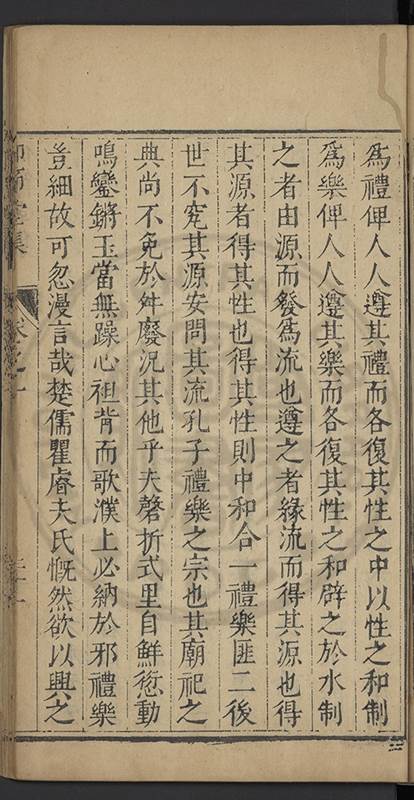 為禮俾人人遵其禮而各復其性之中以性之和制
為樂俾人人遵其樂而各復其性之和辟之於水制
之者由源而發為流也遵之者緣流而得其源也得
其源者得其性也得其性則中和合一禮樂匪二後
世不究其源安問其流孔子禮樂之宗也其廟祀之
典尚不免於舛廢況其他乎夫磬折式里自鮮愆動
鳴鑾鏘玉當無躁心袒背而歌濮上必納於邪禮樂
豈細故可忽漫言哉楚儒瞿睿夫氏慨然欲以興之
集 卷之一